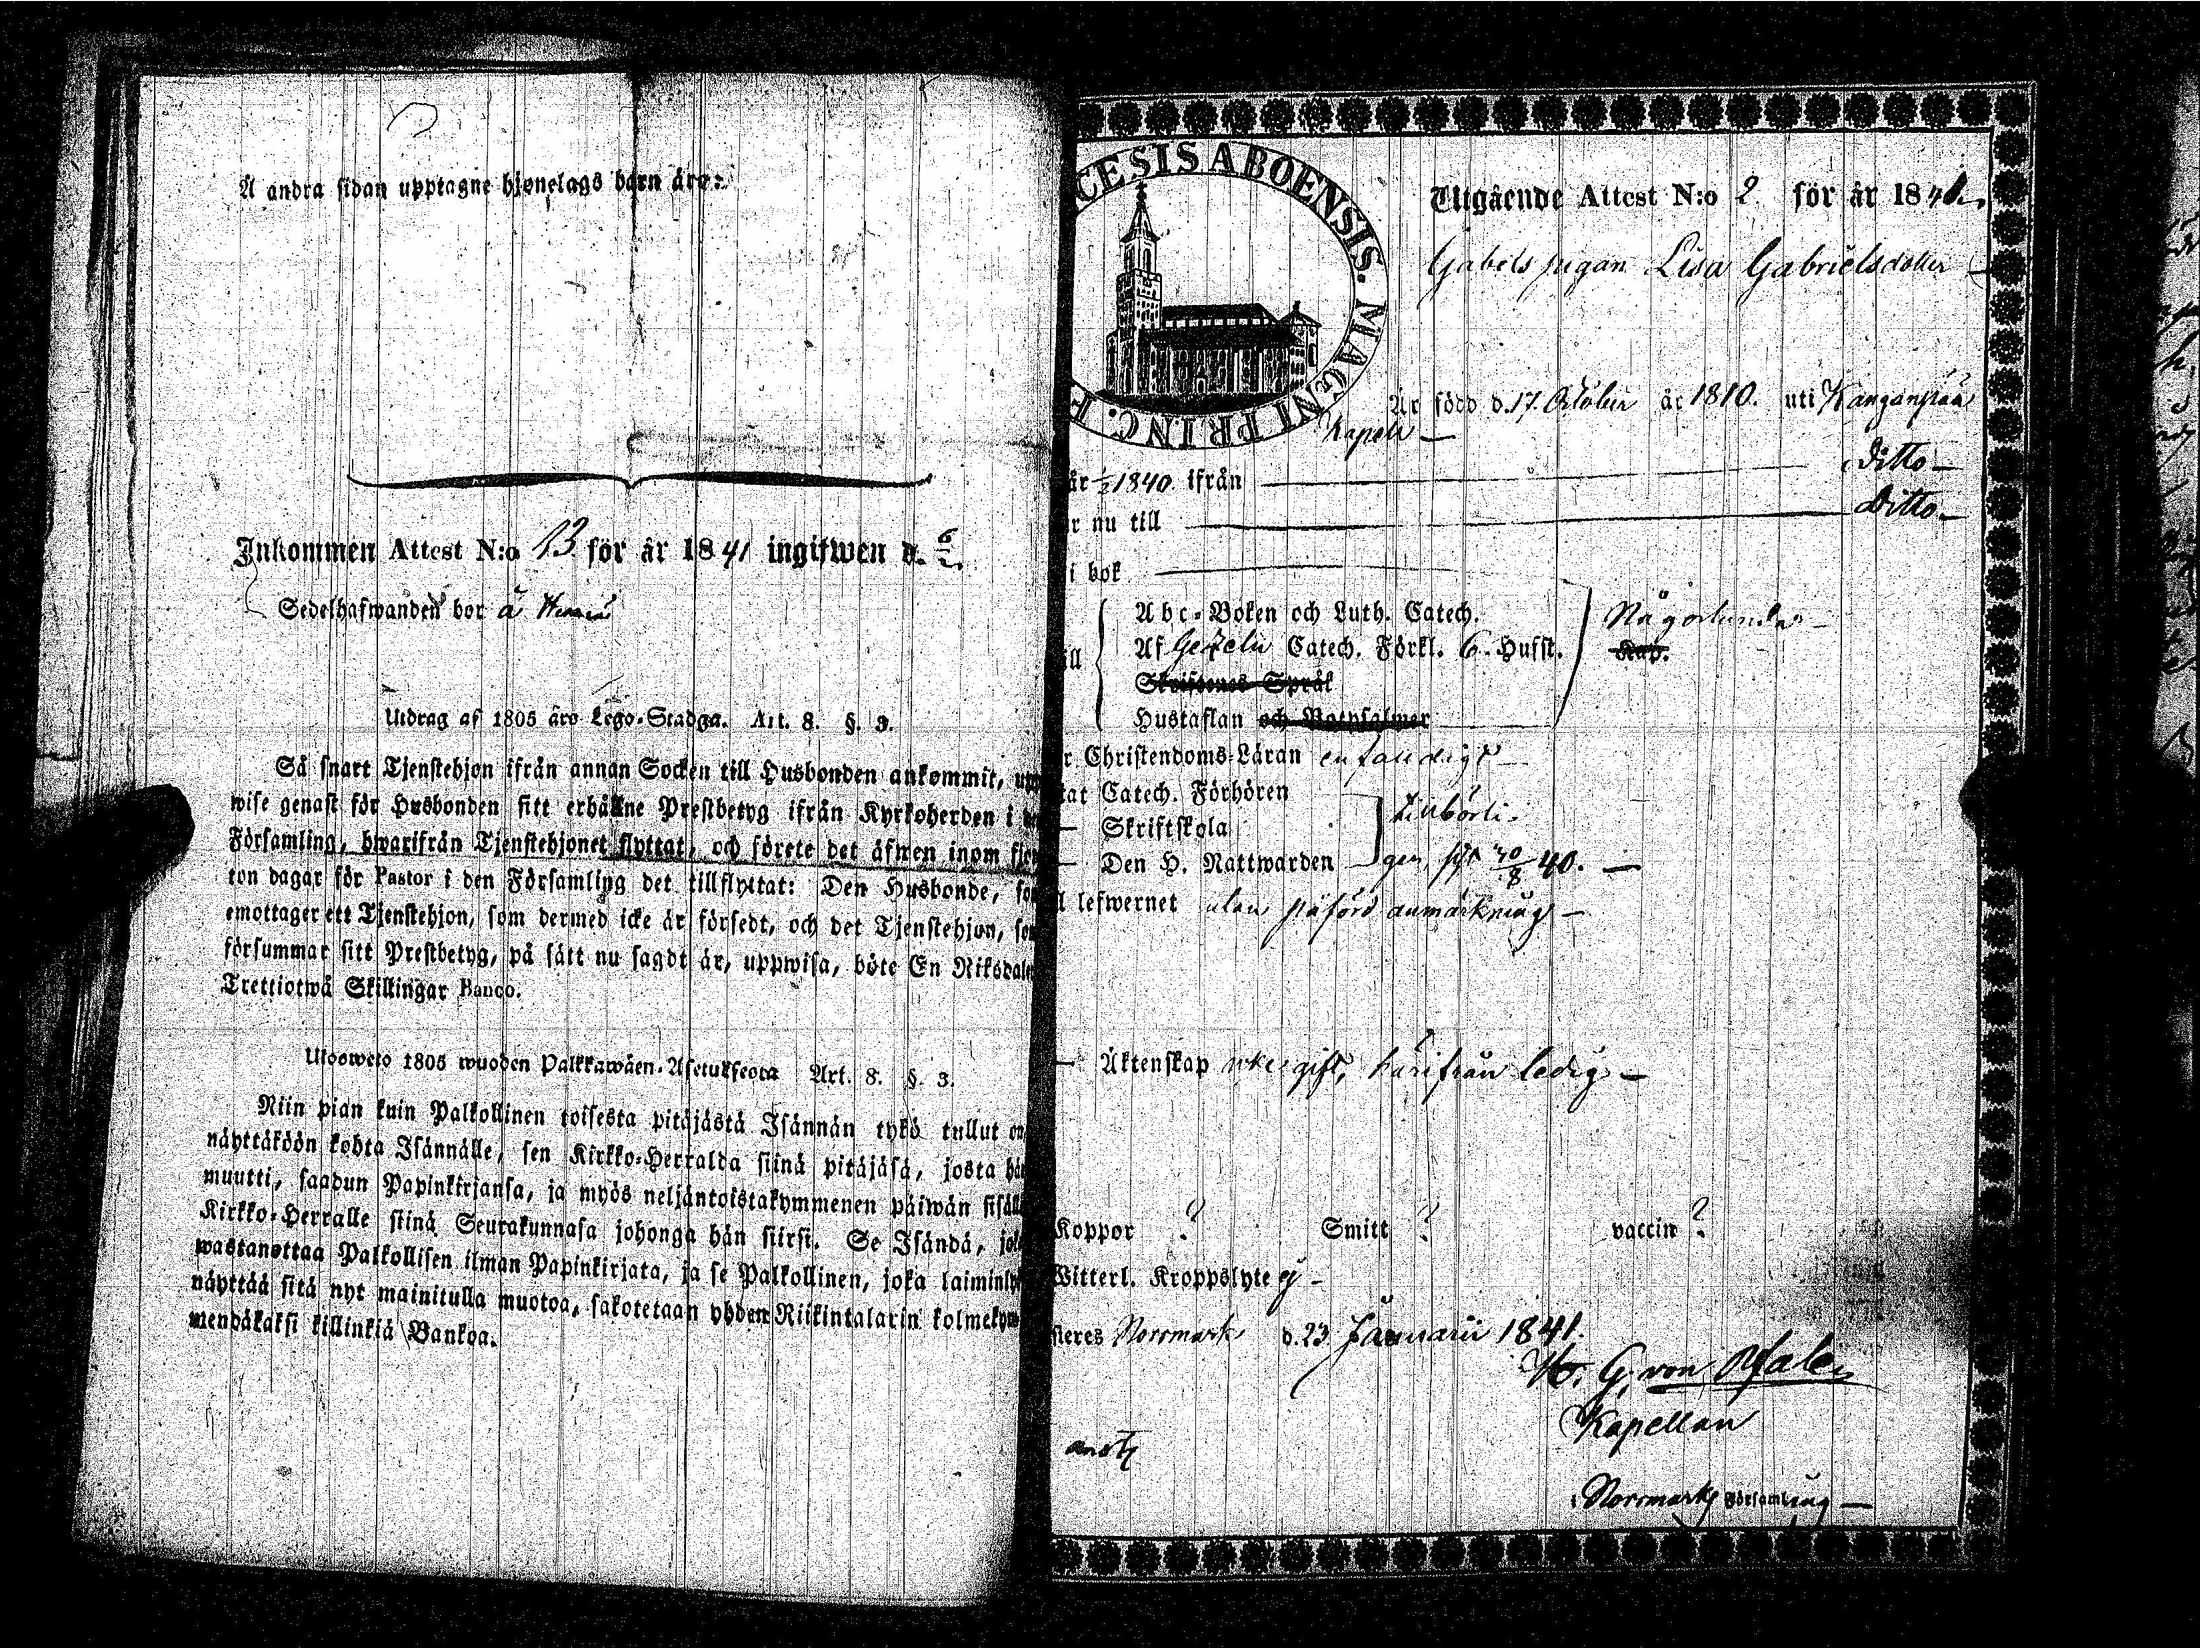 Å andra sidan upptagne hjonelags barn äro:
Inkommen Attest N:o 23 för år 1841 ingifwen d. 6/2.
Sedelhafwanden bor å
Utdrag af 1805 års Lego-Stadga. Art. 8. §. 3.
Så snart Tjenstehjon ifrån annan Socken till Husbonden ankommit, upp
wise genast för Husbonden sitt erhållne Prestbetyg ifrån Kyrkoherden i
Församling, hwarifrån Tjenstehjonet flyttat, och förete det äfwen inom fjor
ton dagar för Pastor i den Församling det tillflyttat: Den Husbonde, som
emottager ett Tjenstehjon, som dermed icke är försedt, och det Tjenstehjon, som
försummar sitt Prestbetyg, på sätt nu sagdt är, uppwisa, böte En Riksdaler
Trettiotwå Skillingar Banco.
Ulosweto 1805 wuoden Palkkawäen-Asetuksesta Art. 8. §. 3.
Niin pian kuin Palkollinen toisesta pitäjästä Isännän tykö tullut on,
näyttäköön kohta Isännälle, sen Kirkko-Herralda siinä pitäjäsä, josta hän
muutti, saadun Papinkirjansa, ja myös neljäntoistakymmenen päiwän sisällä
Kirkko-Herralle siinä Seurakunnasa johonga hän siirsi. Se Isändä, joka
wastanottaa Palkollisen ilman Papinkirjata, ja se Palkollinen, joka laiminlyö
näyttää sitä nyt mainitulla muotoa, sakotetaan yhden Riikintalarin kolmekym
mendäkaksi killinkiä Bankoa.
CESIS ABOENSIS. MAGNI PRINC. F
Utgående Attest N:o 2 för år 1841.
Gabels pigan Lisa Gabrielsdotter
Är född d. 17. October år 1810. uti Kanganpää
Kapell
år 1/2 1840 ifrån ditto
r nu till Ditto
i bok
ill
Abc-Boken och Luth. Catech.
Af Gezelii Catech. Förkl. 6. Hufst.
Skriftenes Språk
Hustaflan och Botpsalmer
Någorlunda
Kap.
r Christendoms-Läran enfaldigt
tat Catech. Förhören
Skriftskola
Den H. Nattwarden
tillbörli-
gen, sist 30/8 40.
l lefwernet utan påförd anmärkning
Äktenskap icke gift, härifrån ledig
Koppor ? Smitt ? vaccin ?
Witterl. Kroppslyte ej
steres Norrmark d. 23 Januarii 1841.
Kapellan
Norrmarks Församling